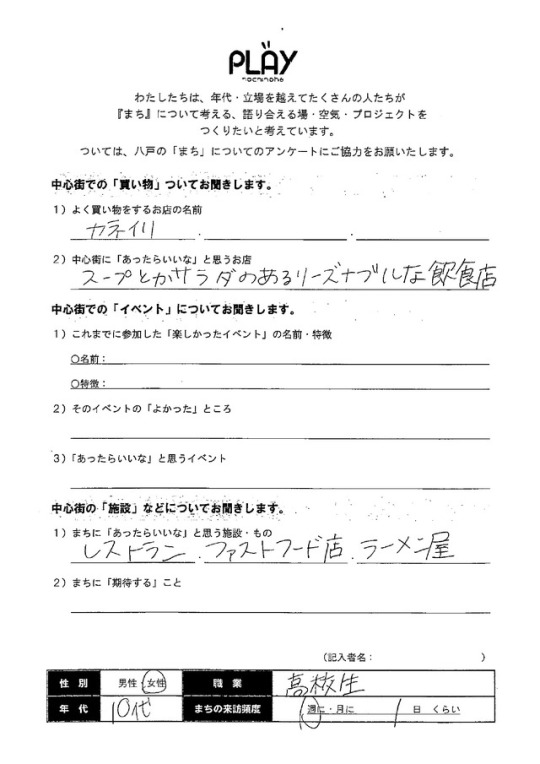 PLAY
machinohe
わたしたちは、年代・立場を越えてたくさんの人たちが
『まち』について考える、語り会える場・空気・プロジェクトを
つくりたいと考えています。
ついては、八戸の「まち」についてのアンケートにご協力をお願いたします。
中心街での「買い物」ついてお聞きします。
1）よく買い物をするお店の名前
カネイリ
2）中心街に「あったらいいな」と思うお店
スープとかサラダのあるリーズナブルな飲食店
中心街での「イベント」についてお聞きします。
1）これまでに参加した「楽しかったイベント」の名前・特徴
○名前：
○特徴：
2）そのイベントの「よかった」ところ
3）「あったらいいな」と思うイベント
中心街の「施設」などについてお聞きします。
1）まちに「あったらいいな」と思う施設・もの
レストラン．ファストフード店．ラーメン屋
2）まちに「期待する」こと
（記入者名：　）
性別 男性・女性 職業 高校生
年代 10代 まちの来訪頻度 週に・月に 1 日 くらい